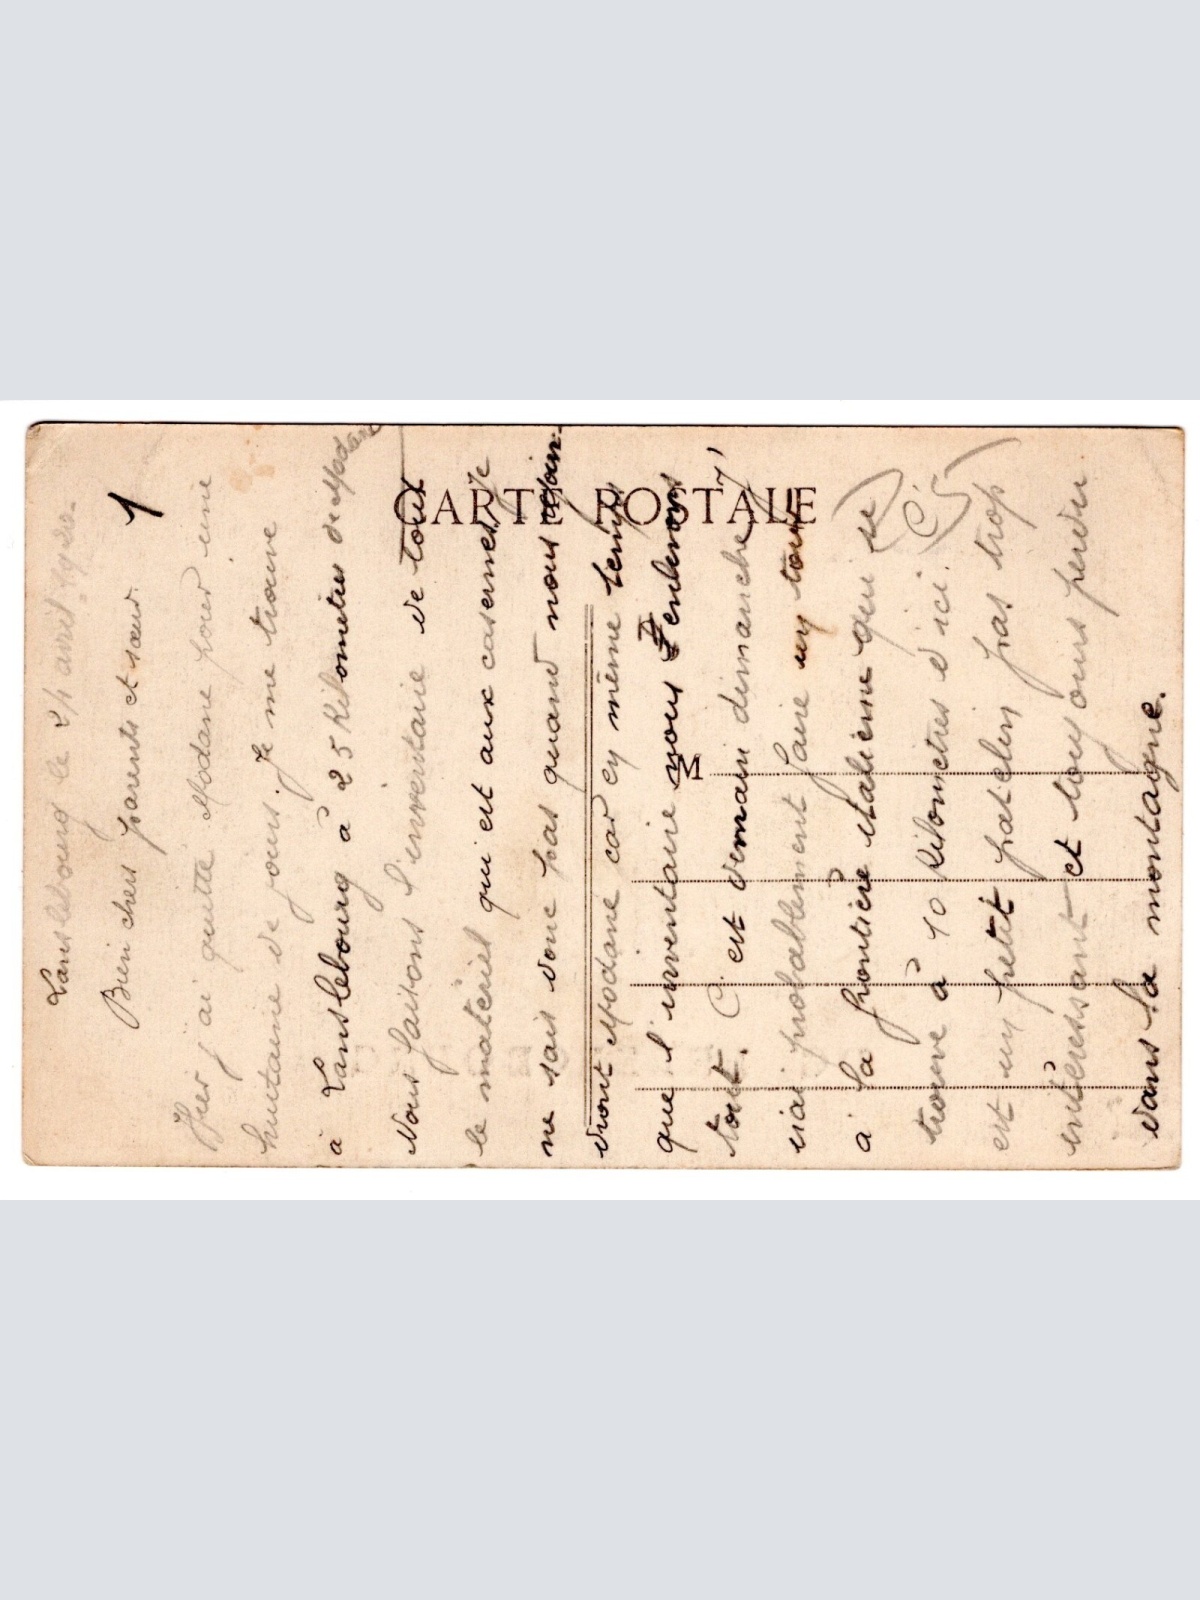 CARTE POSTALE
M
1
Lanslebourg le 24 avril
Bien chers parents et sœur.
Hier j'ai quitté Modane pour une
huitaine de jours. Je me trouve
à Lanslebourg à 25 kilomètres de Modane
Nous faisons l'inventaire de tout
le matériel qui est aux casernes, je
ne sais donc pas quand nous
dront Modane car en même temps
que l'inventaire nous enlevons
tout. C'est demain dimanche, j'
irai probablement faire un tour
à la frontière italienne qui se
trouve à 10 kilomètres d'ici. C'
est un petit patelin pas trop
intéressant et toujours perdu
dans la montagne.